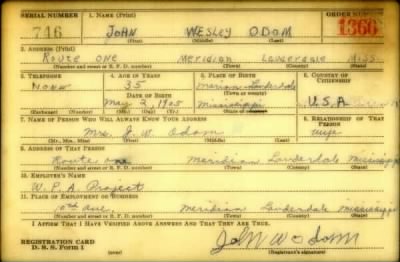 SERIAL NUMBER 1. NAME (Print) ORDER NUMBER
746 JOHN WESLEY ODOM 1360
(First) (Middle) (Last)
2. ADDRESS (Print)
ROUTE ONE MERIDIAN LAUDERDALE MISS.
(Number and street or R. F. D. number) (Town) (County) (State)
3. TELEPHONE 4. AGE IN YEARS 5. PLACE OF BIRTH 6. COUNTRY OF CITIZENSHIP
NONE 35 Lauderdale
DATE OF BIRTH (Town or county)
May 2, 1905 Mississippi U.S.A.
(Exchange) (Number) (Mo.) (Day) (Yr.) (State or country)
7. NAME OF PERSON WHO WILL ALWAYS KNOW YOUR ADDRESS 8. RELATIONSHIP OF THAT PERSON
Mrs. J. W. Odom wife
(Mr., Mrs., Miss) (First) (Middle) (Last)
9. ADDRESS OF THAT PERSON
Route one Meridian Lauderdale Mississippi
(Number and street or R. F. D. number) (Town) (County) (State)
10. EMPLOYER'S NAME
W.P.A. Project
11. PLACE OF EMPLOYMENT OR BUSINESS
10th Ave. Meridian Lauderdale Mississippi
(Number and street or R. F. D. number) (Town) (County) (State)
I AFFIRM THAT I HAVE VERIFIED ABOVE ANSWERS AND THAT THEY ARE TRUE.
REGISTRATION CARD John W Odom
D. S. S. Form 1 (over) (Registrant's signature)